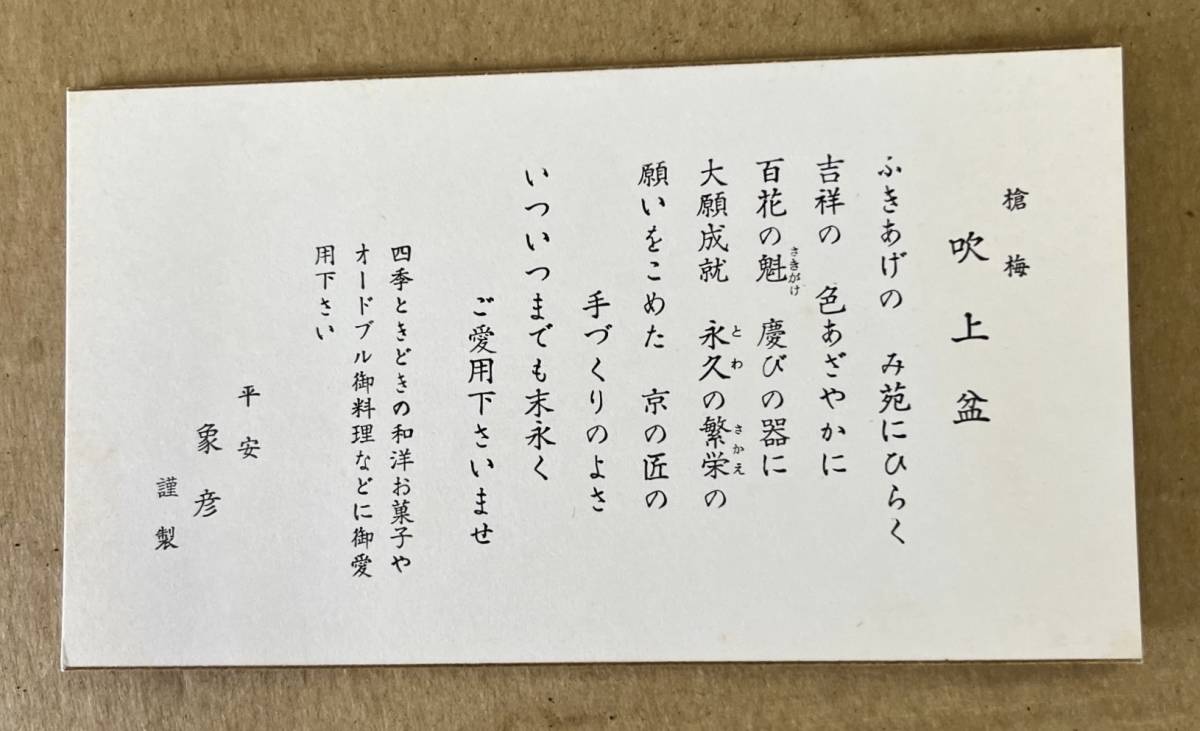 槍梅
吹上盆
ふきあげの　み苑にひらく
吉祥の　色あざやかに
百花の魁　慶びの器に
さきがけ
大願成就　永久の繁栄の
とわ　さかえ
願いをこめた　京の匠の
手づくりのよさ
いついつまでも末永く
ご愛用下さいませ
四季ときどきの和洋お菓子や
オードブル御料理などに御愛
用下さい
平安
象彦
謹製